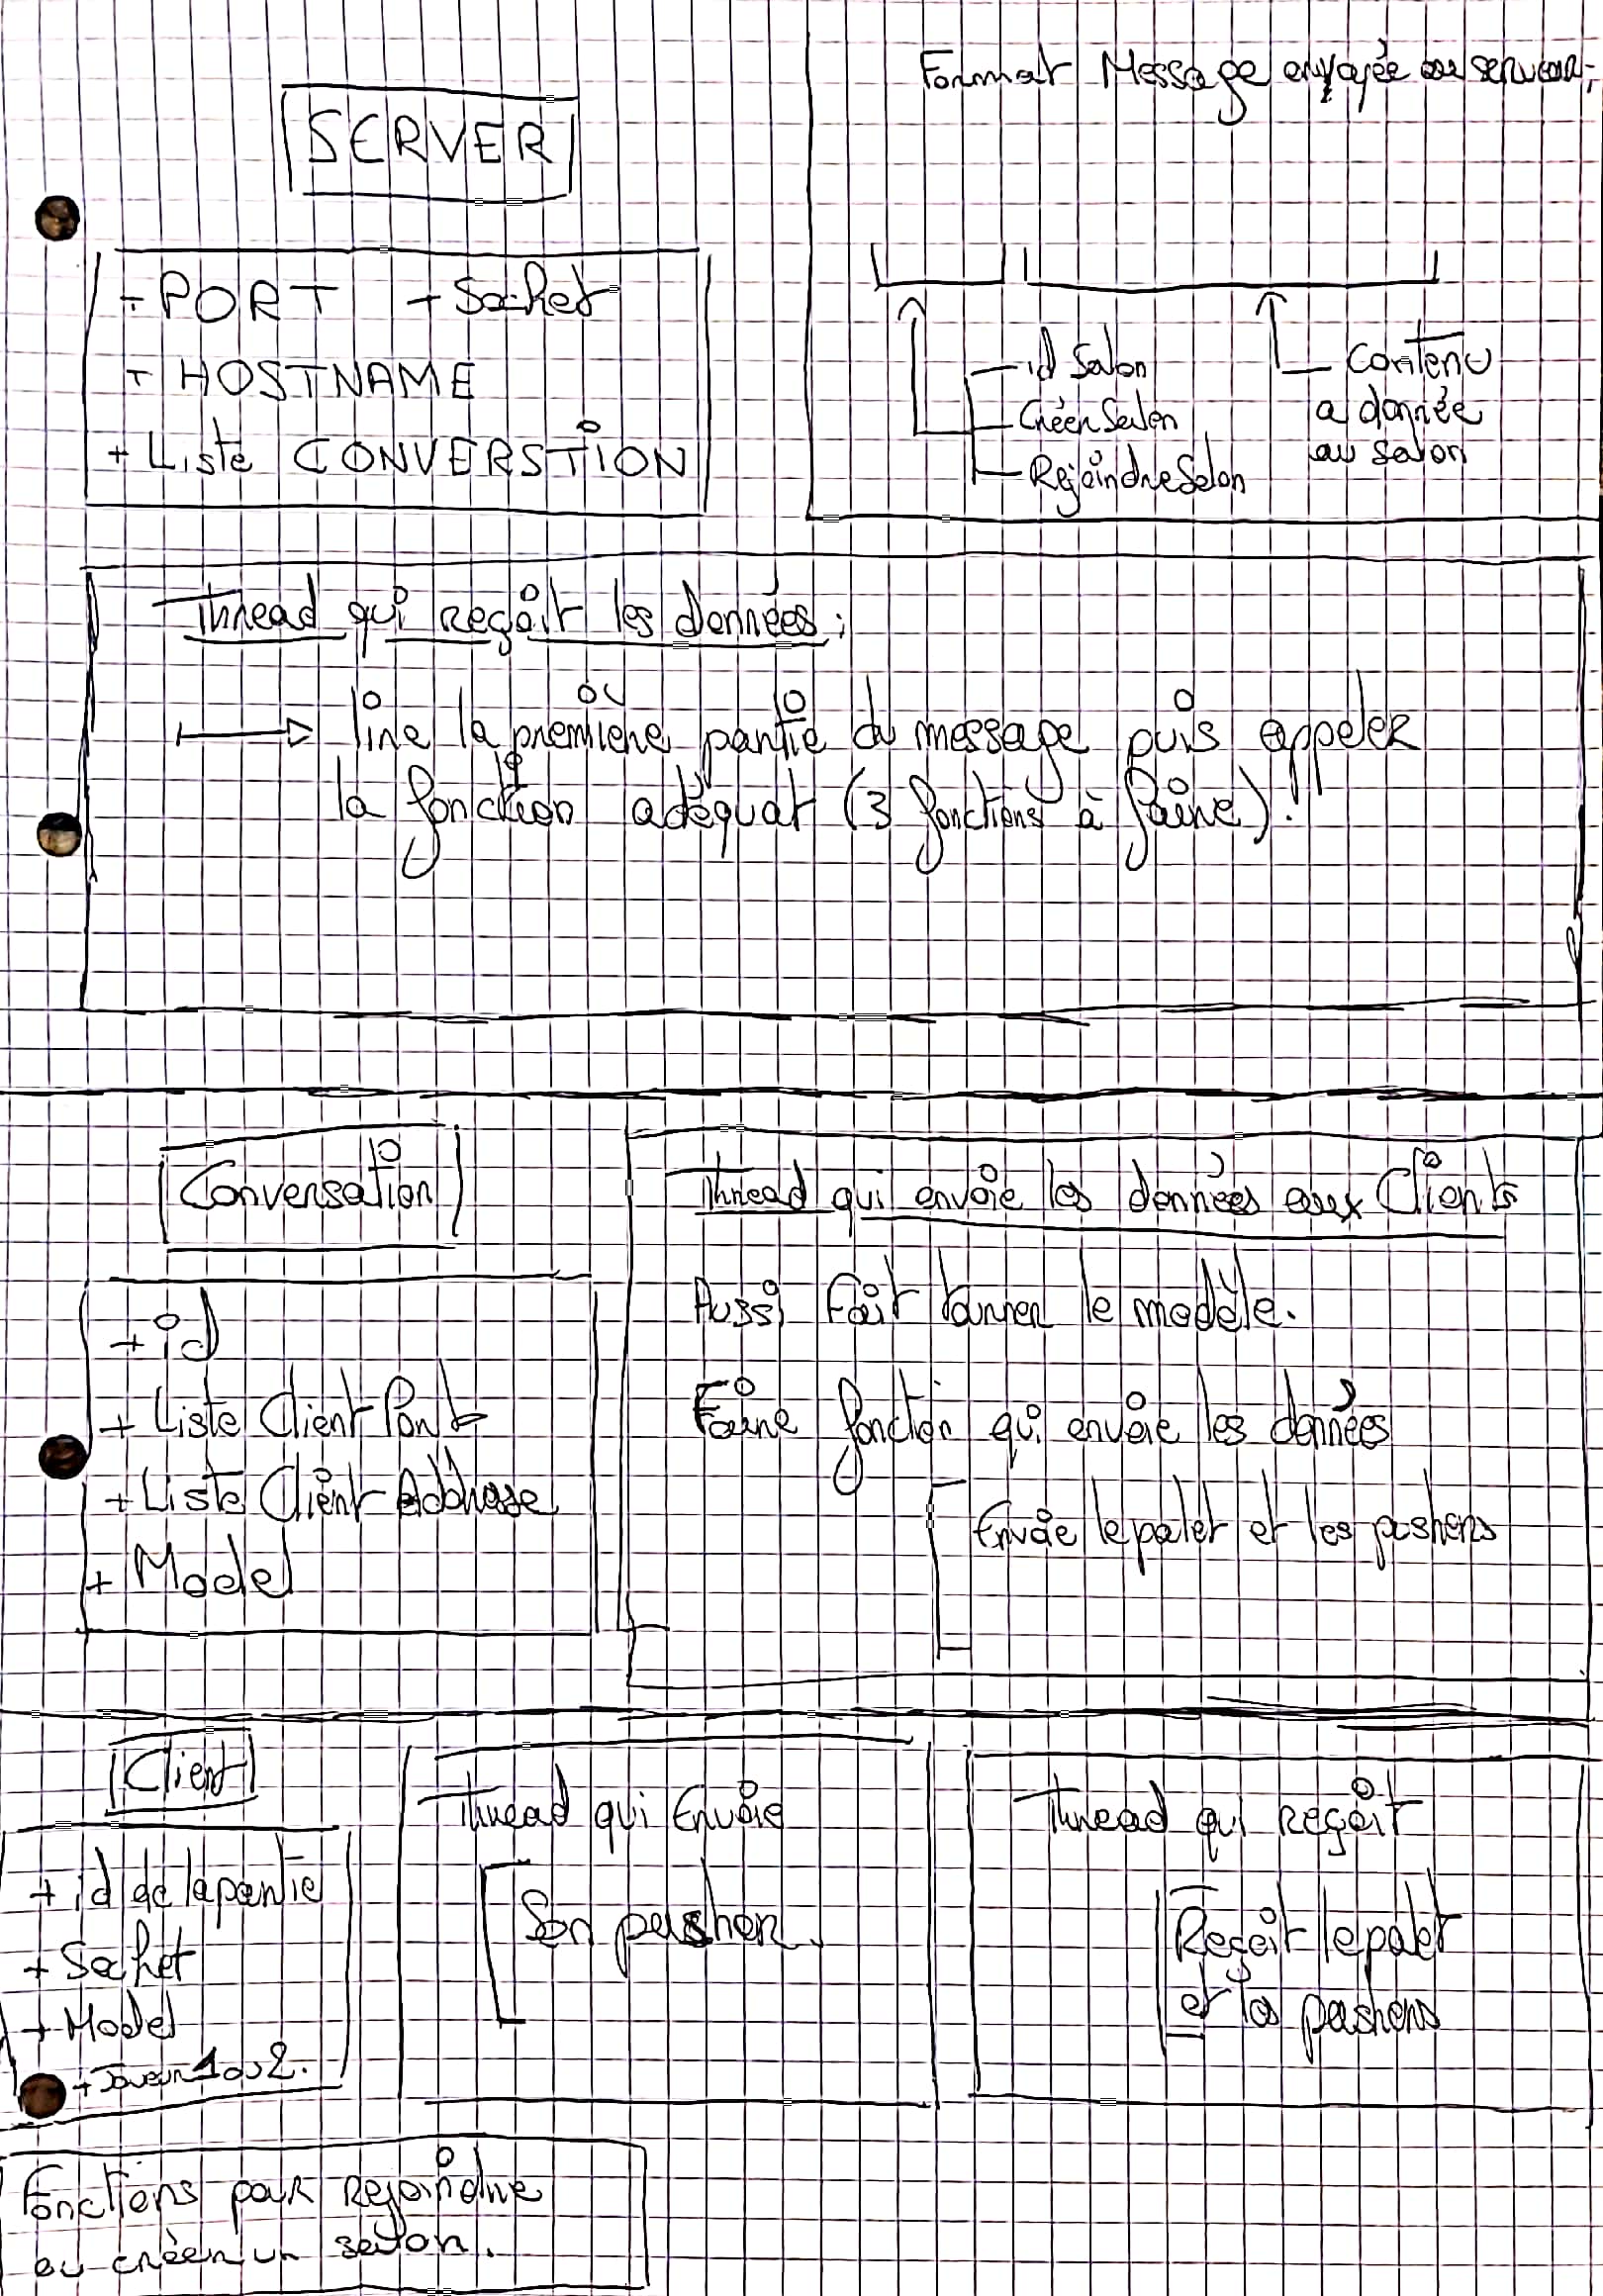 SERVER
+ PORT + Socket
+ HOSTNAME
+ Liste CONVERSTiON
Format Message envoyée au serveur;
id Salon
CréerSalon
RejoindreSalon
Contenu
a donnée
au salon
Thread qui reçoit les données;
lire la première partie du message puis appeler
la fonction adéquat (3 fonctions à faire).
Conversation
+ id
+ Liste Client Port
+ Liste Client Addresse
+ Model
Thread qui envoie les données aux Clients
Aussi Fait tourner le modèle.
Faire fonction qui envoie les données
Envoie le palet et les pushers
Client
+ id de la partie
+ Socket
+ Model
+ Joueur 1 ou 2.
Thread qui Envoie
Son pusher.
Thread qui Reçoit
Reçoit le palet
et les pushers
Fonctions pour Rejoindre
ou créer un salon.